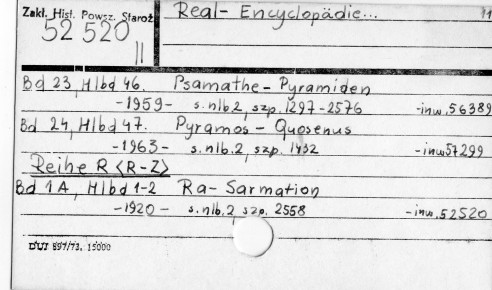 Zakł. Hist. Powsz. Staroż
52 520
II
Real-Encyclopädie...
Bd 23, Hlbd 46. Psamathe - Pyramiden
-1959- s.nlb.2, szp. 1297-2576 -inw. 56389
Bd 24, Hlbd 47. Pyramos - Quosenus
-1963- s.nlb.2, szp. 1432 -inw 57299
Reihe R <R-Z>
Bd 1A, Hlbd 1-2 Ra-Sarmation
-1920- s.nlb.2 szp. 2558 -inw. 52520
DUJ 597/73. 15000